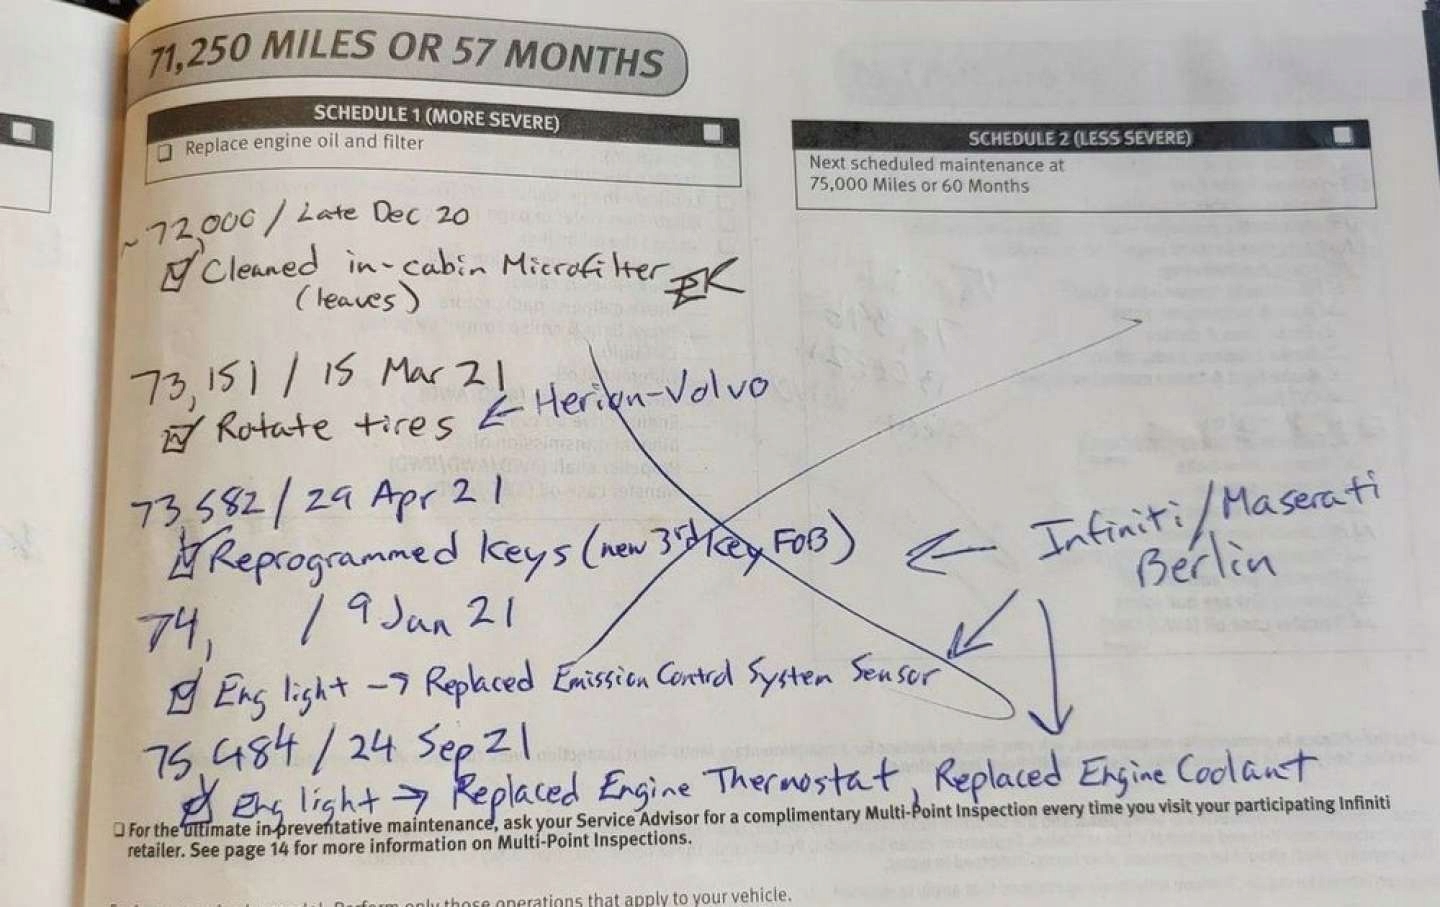 71,250 MILES OR 57 MONTHS
SCHEDULE 1 (MORE SEVERE)
Replace engine oil and filter
SCHEDULE 2 (LESS SEVERE)
Next scheduled maintenance at
75,000 Miles or 60 Months
~72,000 / Late Dec 20
Cleaned in-cabin Microfilter EK
(leaves)
73,151 / 15 Mar 21
Rotate tires ← Herion-Volvo
73,582 / 29 Apr 21
Reprogrammed keys (new 3rd key FOB) ← Infiniti/Maserati
Berlin
74, / 9 Jan 21
Eng light → Replaced Emission Control System Sensor
75,484 / 24 Sep 21
Eng light → Replaced Engine Thermostat, Replaced Engine Coolant
For the ultimate in preventative maintenance, ask your Service Advisor for a complimentary Multi-Point Inspection every time you visit your participating Infiniti
retailer. See page 14 for more information on Multi-Point Inspections.
Perform only those operations that apply to your vehicle.